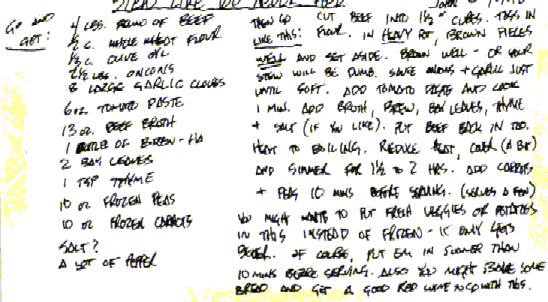 GO AND
GET:
4 LBS. ROUND OF BEEF
1/2 C. WHOLE WHEAT FLOUR
1/3 C. OLIVE OIL
2 1/2 LBS. ONIONS
8 LARGE GARLIC CLOVES
6 OZ. TOMATO PASTE
13 OZ. BEEF BROTH
1 BOTTLE OF BREW-HA
2 BAY LEAVES
1 TSP THYME
10 OZ FROZEN PEAS
10 OZ FROZEN CARROTS
SALT?
A LOT OF PEPPER
THEN GO CUT BEEF INTO 1 1/2" CUBES. TOSS IN
LIKE THIS: FLOUR. IN HEAVY POT, BROWN PIECES
WELL AND SET ASIDE. BROWN WELL - OR YOUR
STEW WILL BE DUMB. SAUTE ONIONS + GARLIC JUST
UNTIL SOFT. ADD TOMATO PASTE AND COOK
1 MIN. ADD BROTH, BREW, BAY LEAVES, THYME
+ SALT (IF YOU LIKE). PUT BEEF BACK IN TOO.
HEAT TO BOILING. REDUCE HEAT, COVER (A BIT)
AND SIMMER FOR 1 1/2 TO 2 HRS. ADD CARROTS
+ PEAS 10 MINS BEFORE SERVING. (SERVES A FEW)
YOU MIGHT WANT TO PUT FRESH VEGGIES OR POTATOES
IN THIS INSTEAD OF FROZEN - IT ONLY GETS
BETTER. OF COURSE, PUT EM IN SOONER THAN
10 MINS BEFORE SERVING. ALSO YOU MIGHT SOME
BREAD AND GET A GOOD RED WINE TO GO WITH THIS.